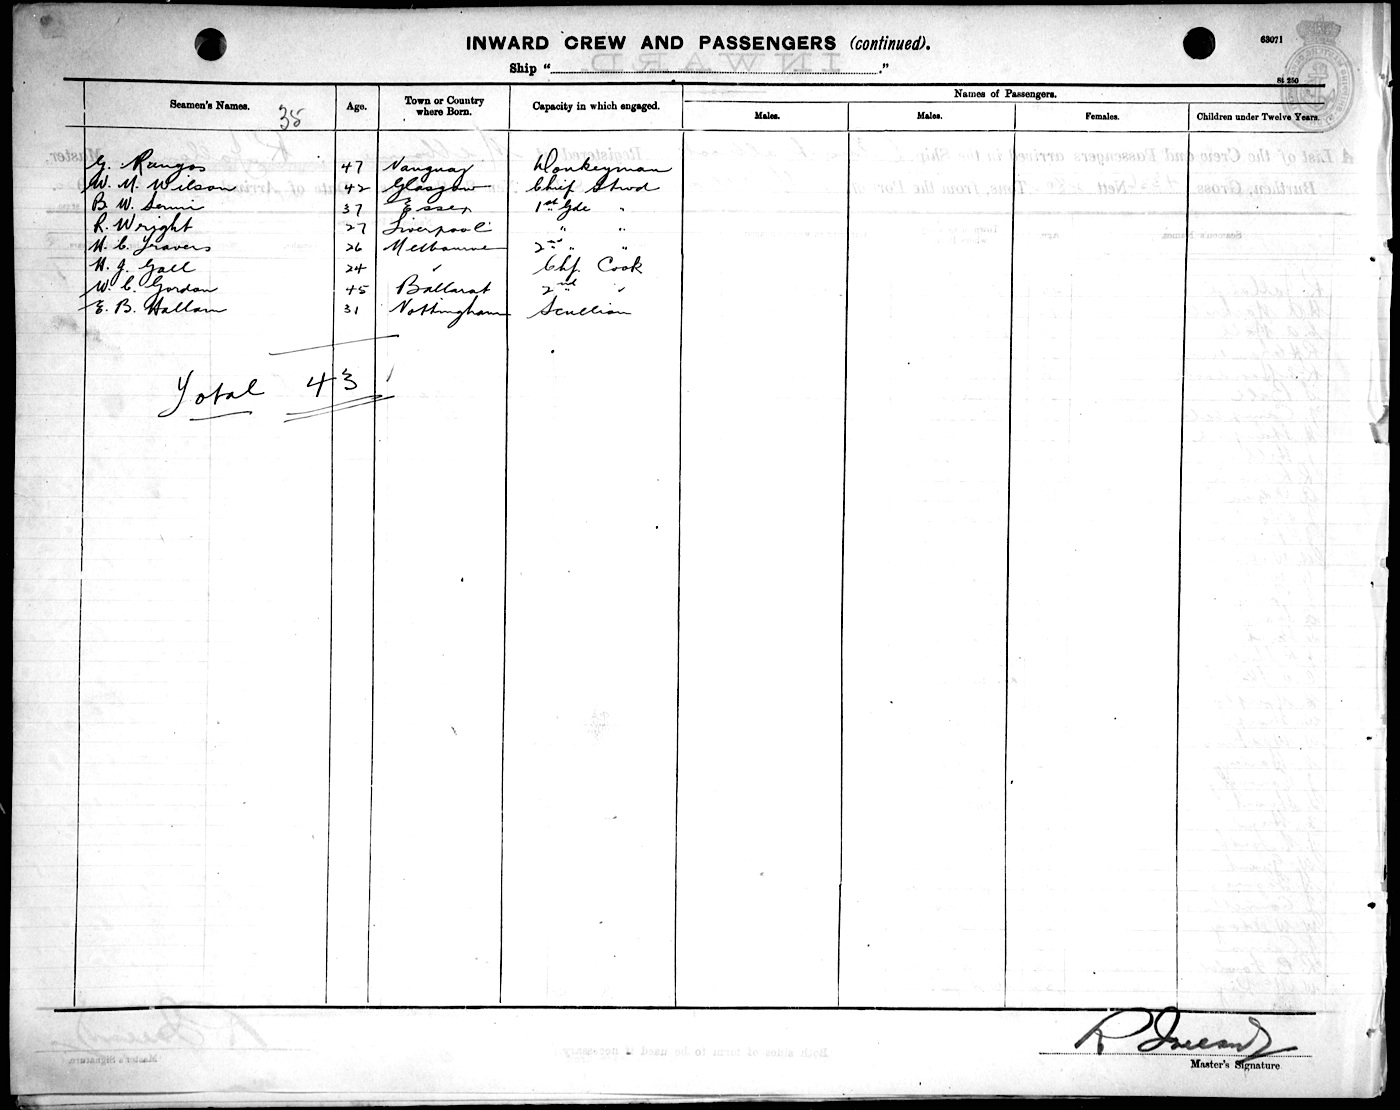 INWARD CREW AND PASSENGERS (continued).
63071
Ship " "
St 250
Seamen's Names. Age. Town or Country where Born. Capacity in which engaged. Names of Passengers.
Males. Males. Females. Children under Twelve Years.
35
G. 47 Donkeyman
W. M. Wilson 42 Glasgow Chief Stwd
B. W. 37 Essex 1st Gde "
R. Wright 27 Liverpool " "
H. C. Travers 26 Melbourne 2nd " "
H. J. Gall 24 " Chf. Cook
W. C. Gordon 45 Ballarat 2nd "
E. B. Hallam 31 Nottingham Scullion
Total 43
R
Master's Signature